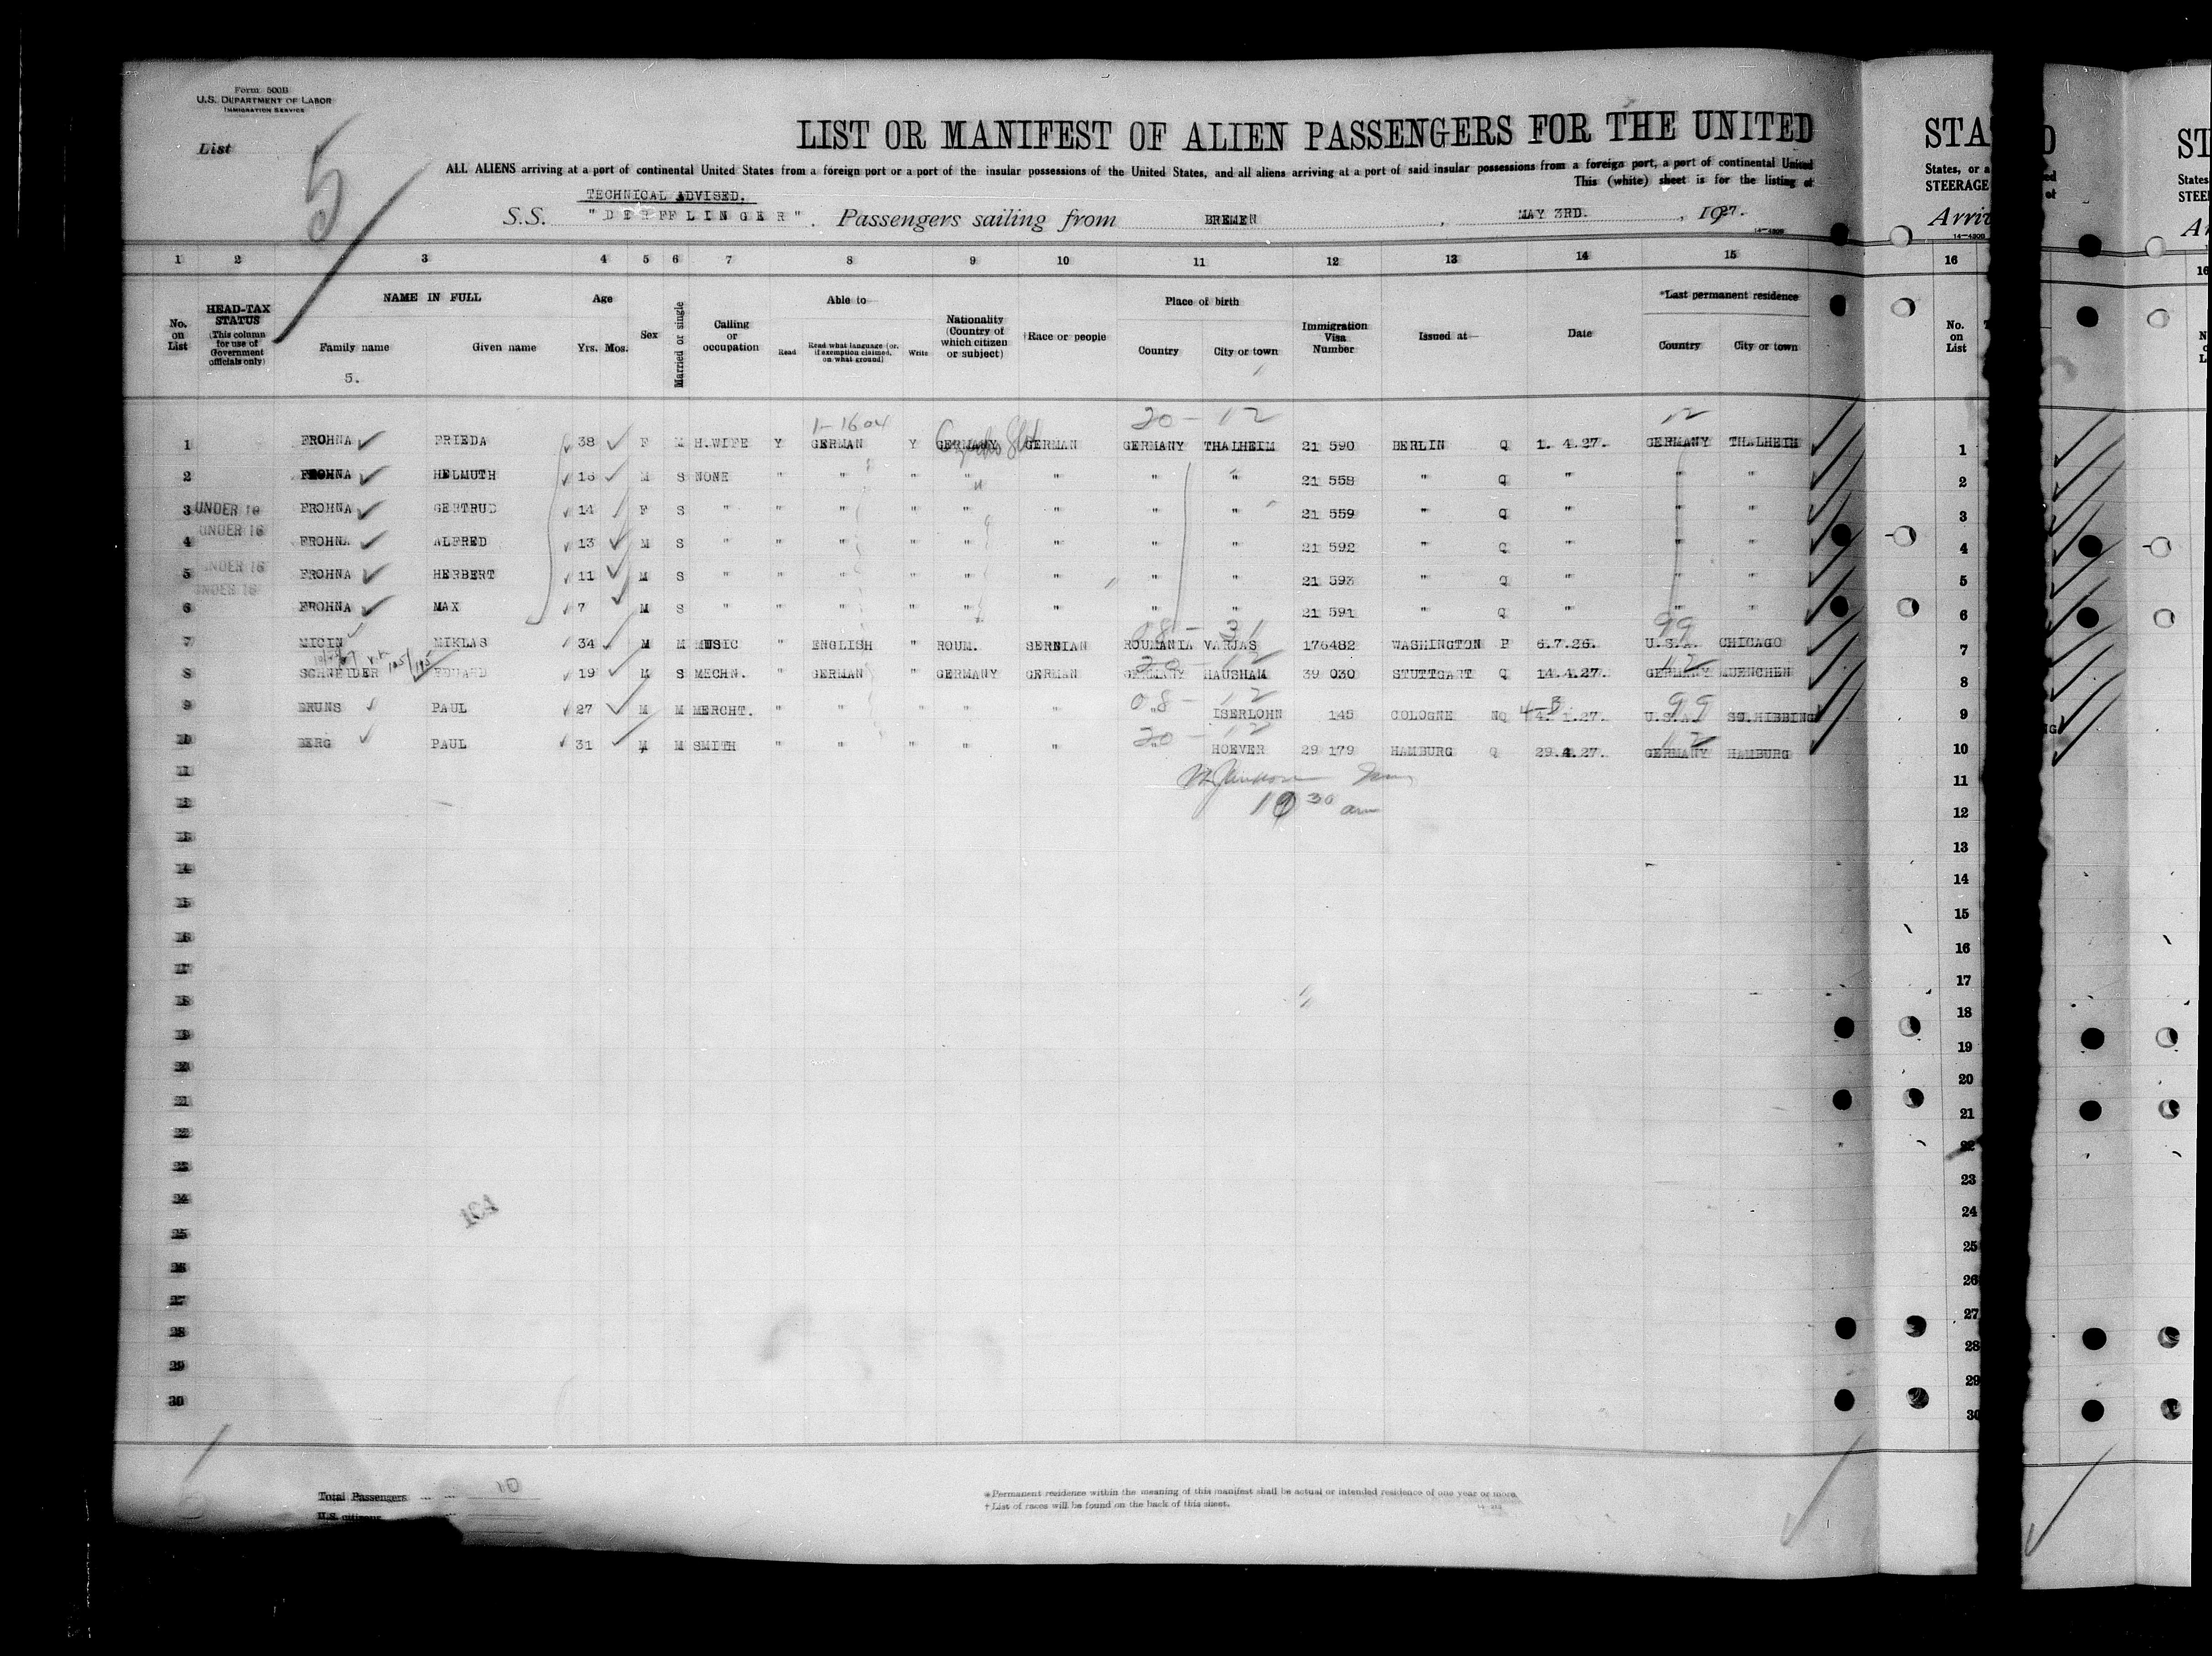 Form 500B
U.S. DEPARTMENT OF LABOR
IMMIGRATION SERVICE
List 5
LIST OR MANIFEST OF ALIEN PASSENGERS FOR THE UNITED
ALL ALIENS arriving at a port of continental United States from a foreign port or a port of the insular possessions of the United States, and all aliens arriving at a port of said insular possessions from a foreign port, a port of continental United
This (white) sheet is for the listing of
TECHNICAL ADVISED.
S.S. "DERFFLINGER". Passengers sailing from BREMEN, MAY 3RD., 1927.
14-430B
STA
States, or a
STEERAGE
Arriv
14-430B
1 2 3 4 5 6 7 8 9 10 11 12 13 14 15 16
No. on List
HEAD-TAX STATUS (This column for use of Government officials only)
NAME IN FULL
Family name Given name
5.
Age
Yrs. Mos.
Sex
Married or single
Calling or occupation
Able to
Read Read what language (or, if exemption claimed, on what ground) Write
Nationality (Country of which citizen or subject)
Race or people
Place of birth
Country City or town
Immigration Visa Number
Issued at
Date
*Last permanent residence
Country City or town
No. on List
1-1604 20 - 12 12
1 FROHNA FRIEDA 38 F M H.WIFE Y GERMAN Y GERMANY GERMAN GERMANY THALHEIM 21 590 BERLIN Q 1. 4.27. GERMANY THALHEIM 1
2 FROHNA HELMUTH 16 M S NONE " " " " " " " 21 558 " Q " " " 2
3 UNDER 16 FROHNA GERTRUD 14 F S " " " " " " " " 21 559 " Q " " " 3
4 UNDER 16 FROHNA ALFRED 13 M S " " " " " " " " 21 592 " Q " " " 4
5 UNDER 16 FROHNA HERBERT 11 M S " " " " " " " " 21 593 " Q " " " 5
6 UNDER 16 FROHNA MAX 7 M S " " " " " " " " 21 591 " Q " " " 6
08 - 31 99
7 MICIN MIKLAS 34 M M MUSIC " ENGLISH " ROUM. SERBIAN ROUMANIA VARJAS 176482 WASHINGTON P 6.7.26. U.S.A. CHICAGO 7
20 - 12 12
8 SCHNEIDER 195/195 EDUARD 19 M S MECHN. " GERMAN " GERMANY GERMAN GERMANY HAUSHAM 39 030 STUTTGART Q 14.4.27. GERMANY MUENCHEN 8
08 - 12 4-B 99
9 BRUNS PAUL 27 M M MERCHT. " " " " " " ISERLOHN 145 COLOGNE NQ 4. 1.27. U.S.A. SO.HIBBING 9
20 - 12 12
10 BERG PAUL 31 M M SMITH " " " " " " HOEVER 29 179 HAMBURG Q 29.4.27. GERMANY HAMBURG 10
11 11
10 30 am
12 12
13 13
14 14
15 15
16 16
17 17
18 18
19 19
20 20
21 21
22 22
23 23
24 24
25 25
26 26
27 27
28 28
29 29
30 30
Total Passengers 10
U.S. citizens
*Permanent residence within the meaning of this manifest shall be actual or intended residence of one year or more.
†List of races will be found on the back of this sheet.